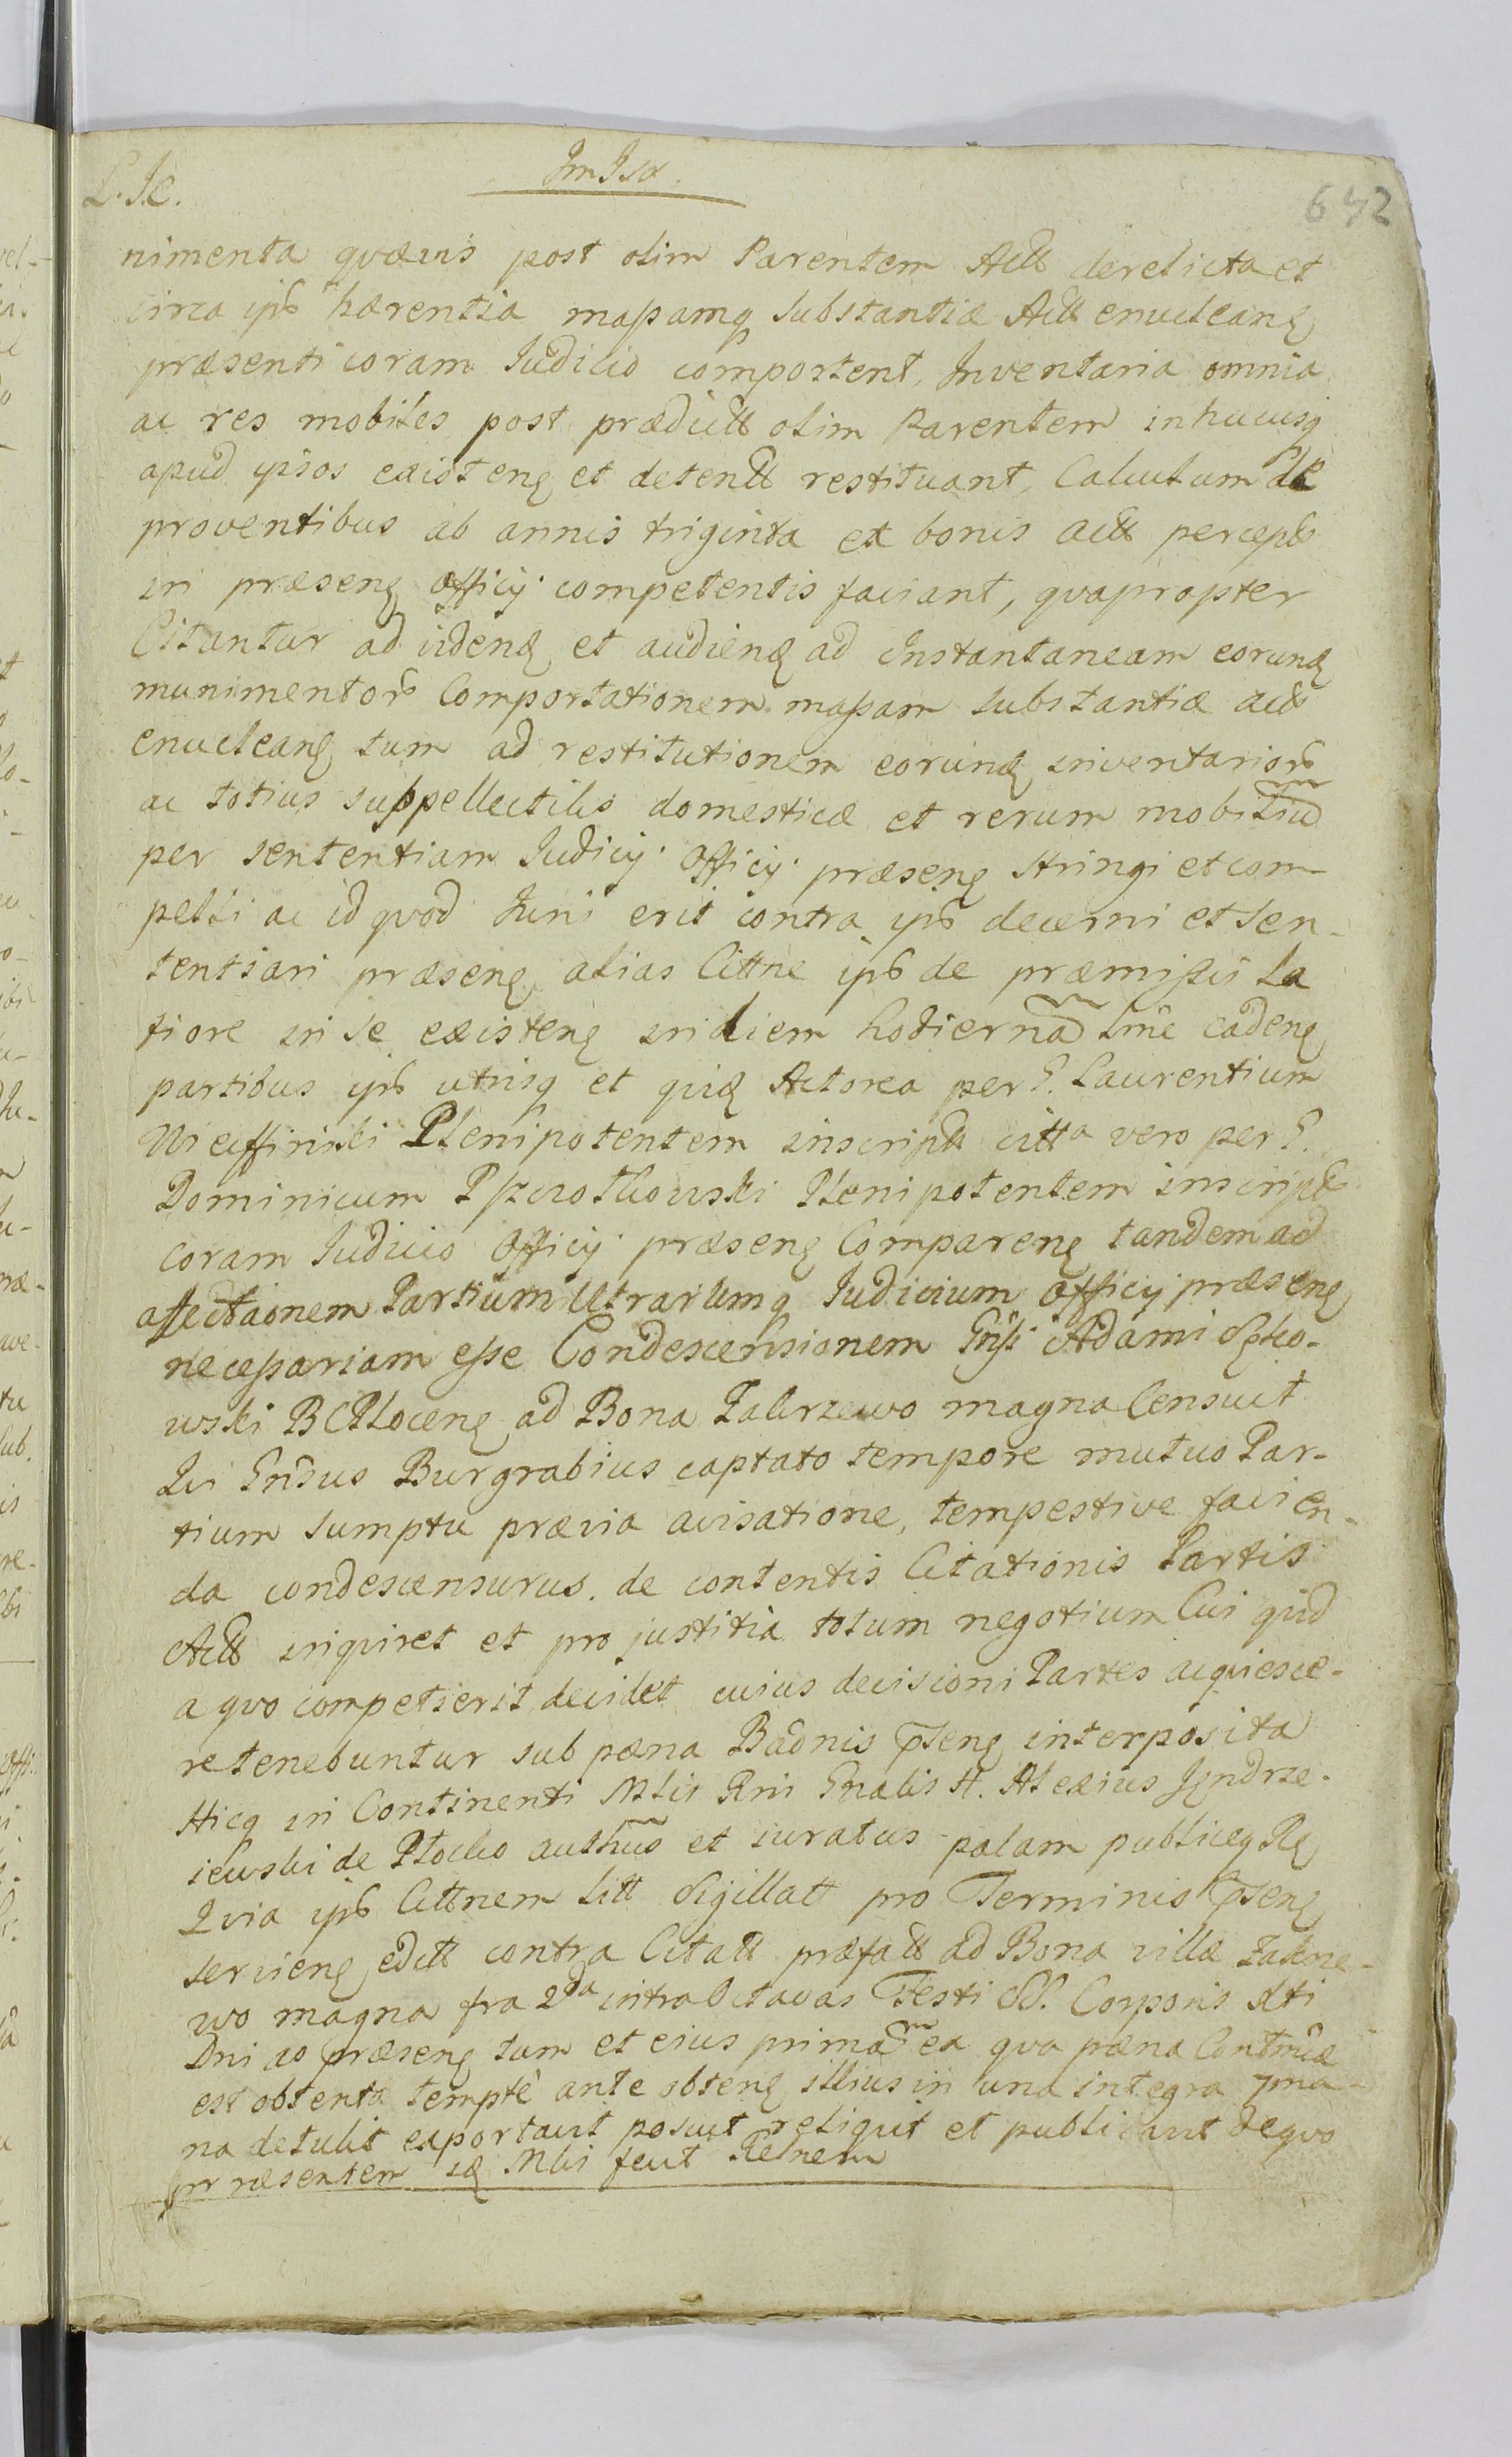 L. J.C.
642
nimenta quævis post olim Parentem Actt derelicta et
circa ips hærentia massamq substantiæ Actt enucleanę
præsenti coram Iudicio comportent, Inventaria omnia
ac res mobiles post prædictt olim Parentem inhucusq
apud ipsos existenę et detentt restituant, Calculum de
proventibus ab annis triginta ex bonis actt percept
in præsenę Officij competentis faciant, quapropter
Citantur ad videnę et audienę ad Instantaneam eorunę
munimentor Comportationem massam substantiæ actt
enucleanę tum ad restitutionem eorunę inventarior
ac totius suppellectilis domesticæ et rerum mobiliũ
per sententiam Iudicij Officij præsenę stringi et com
pelli ac id quod Iuris erit contra ips decerni et sen-
tentiari præsenę alias Cittne ips de præmissis la
tiore in se existenę in diem hodiernã sine cadenę
partibus ips utrisq et quię Actorea per G. Laurentium
Plenipotentem inscript citta vero per G.
Dominicum Plenipotentem inscript
coram Iudicio Officij præsenę Comparenę tandem ad
affectaõnem Partium Utrarumq Iudicium Officij præsenę
necessariam esse Condescensionem Gnsi Adami
wski BCPlocenę ad Bona Zakrzewo magna Censuit
Qui Gnsus Burgrabius captato tempore mutuo Par-
tium sumptu prævia avisatione, tempestive facien-
da condescensurus. de contentis Citationis Partis
Actt inquiret et pro justitia totum negotium Cui quid
a quo competierit decidet cuius decisioni Partes acquiesce-
re tenebuntur sub pæna Badnis psenę interposita
Hicq in Continenti Mlis Rni Gnalis H. Alexius Jędrze-
iewski de Plocko authũs et iuratus palam publicęq Rę
Quia ips Cittnem litt Sigillatt pro Terminis psenę
servienę editt contra Citatt præfatt ad Bona villæ Zakrze-
wo magna fra 2da intra Octavas Festi SS. Corporis Xti
Dni ao præsenę tum et eius primã ea qua pæna Contmciæ
est obtenta tempte ante obtenę illius in una integra 7ma-
na detulit exportavit posuit reliquit et publicavit de quo
præsentem sę Mlis fecit Relnem